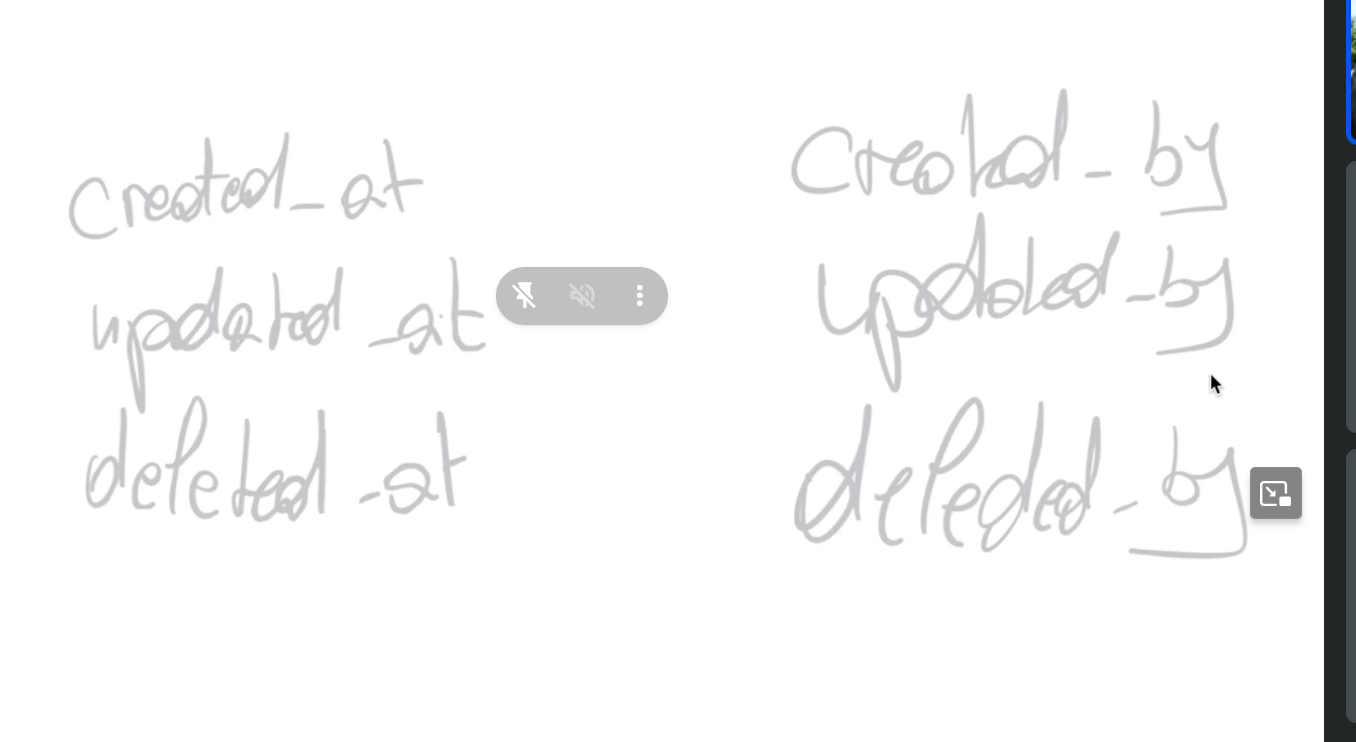 created_at
updated_at
deleted_at
Created_by
updated_by
deleted_by